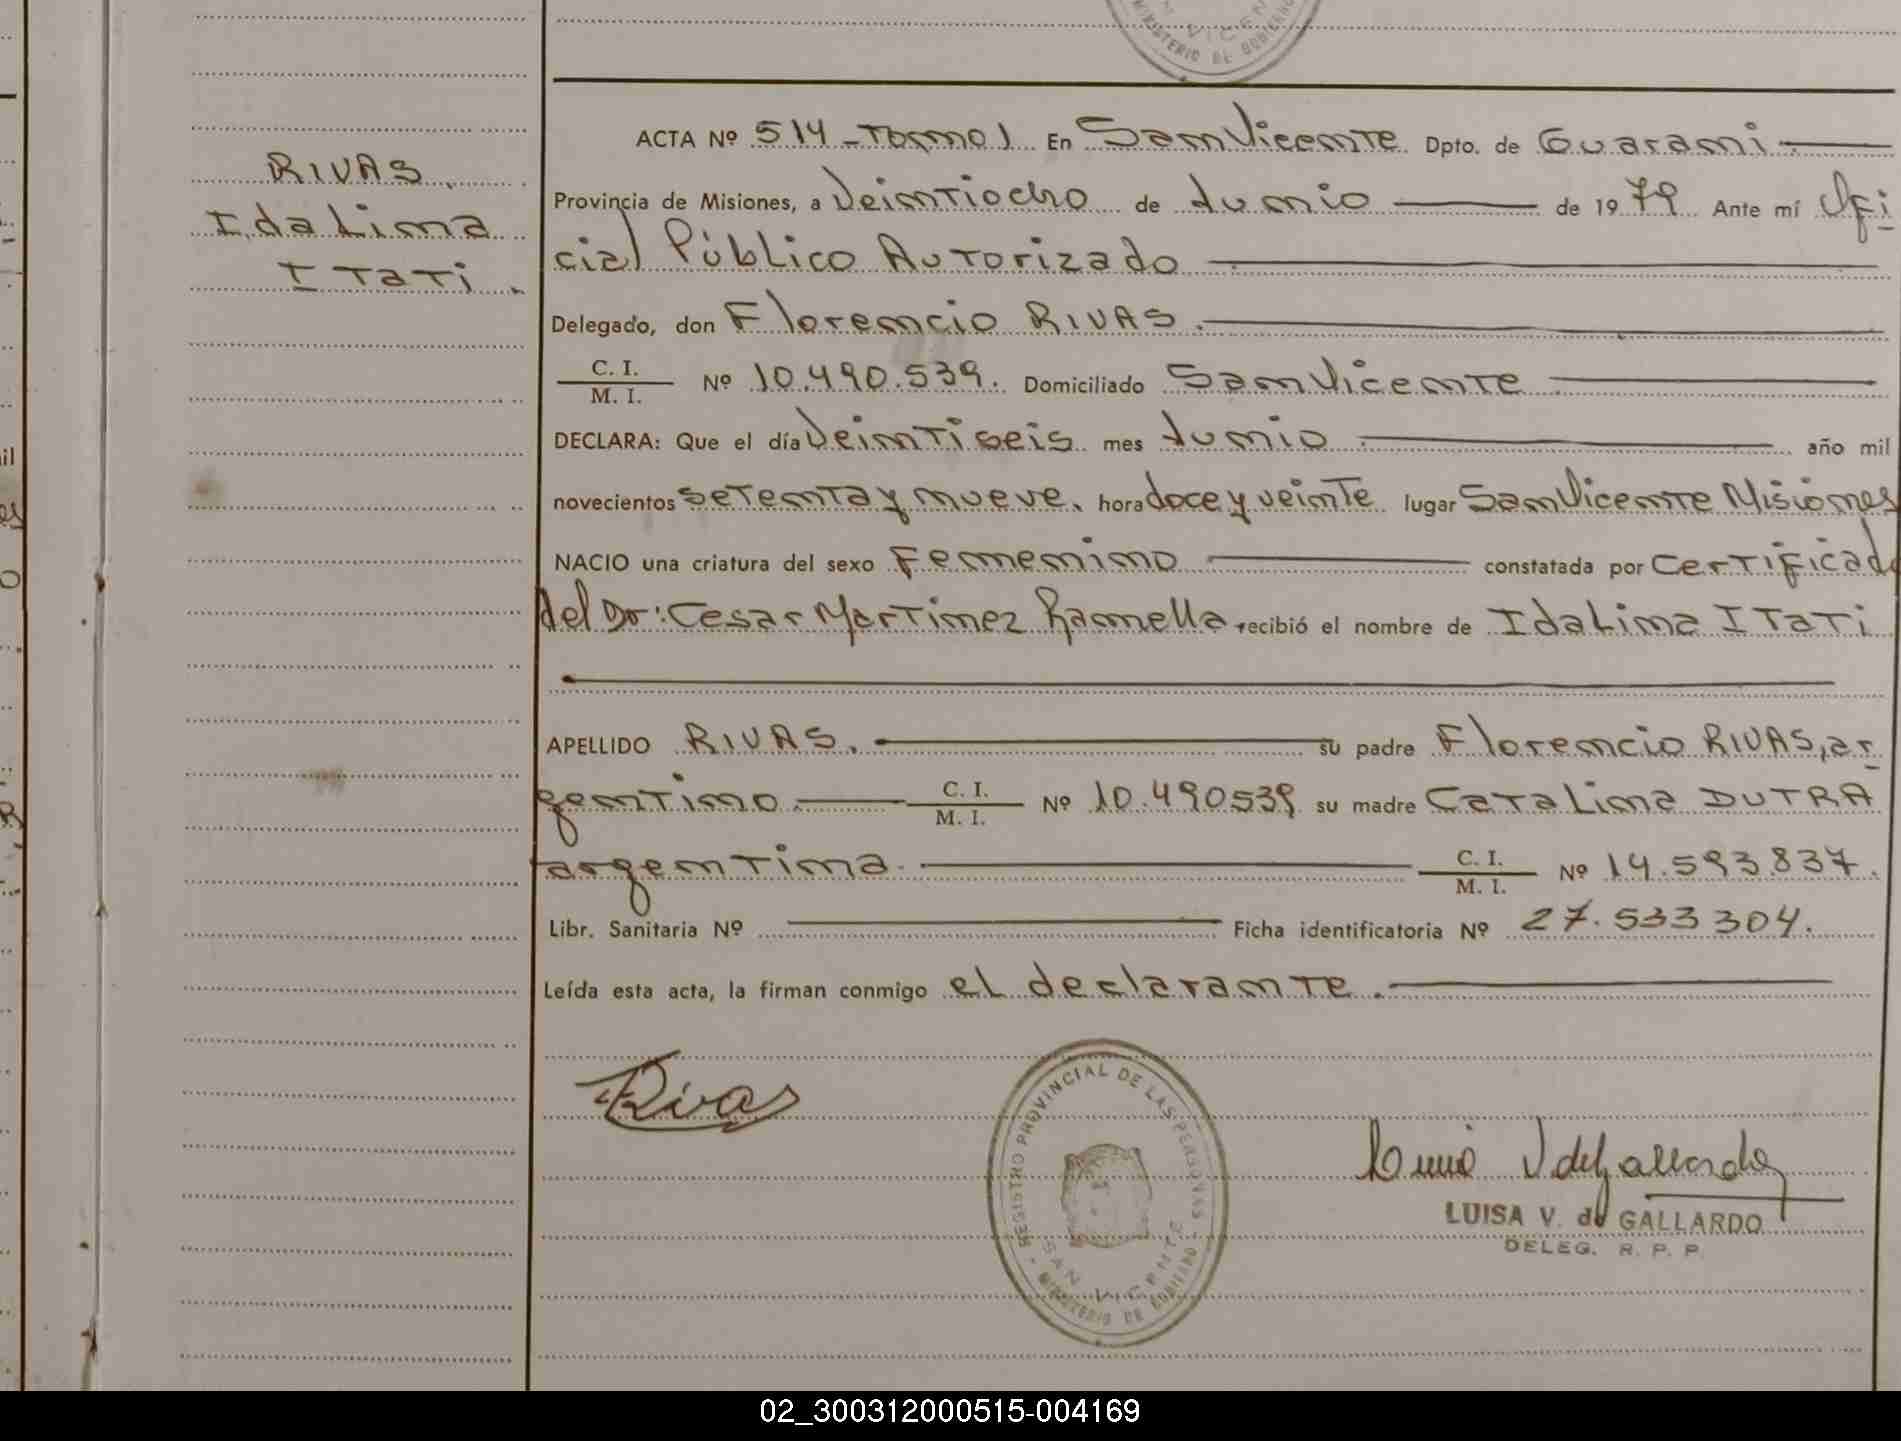 N VICEN
MINISTERIO DE GOBIERNO
RIVAS
IdaLina
ITaTi.
ACTA Nº 514-Tomo 1 En San Vicente Dpto. de Guarani
Provincia de Misiones, a Veintiocho de Junio de 1979 Ante mí Ofi
cial Público Autorizado
Delegado, don Florencio RIVAS.
C. I.
M. I. Nº 10.490.539. Domiciliado San Vicente
DECLARA: Que el día Veintiseis mes Junio año mil
novecientos setenta y nueve. hora doce y veinte lugar San Vicente Misiones
NACIO una criatura del sexo Femenino constatada por Certificado
del Dr: Cesar Martinez Ramella recibió el nombre de IdaLina ITaTi
APELLIDO RIVAS. su padre Florencio RIVAS, ar
gentino. C. I. M. I. Nº 10.490539 su madre CataLina DUTRA
argentina. C. I. M. I. Nº 14.593.837.
Libr. Sanitaria Nº Ficha identificatoria Nº 27.533 304.
Leída esta acta, la firman conmigo el declarante.
Rivas
REGISTRO PROVINCIAL DE LAS PERSONAS
SAN VICENTE
MINISTERIO DE GOBIERNO
LUISA V. de GALLARDO
DELEG. R. P. P.
02_300312000515-004169